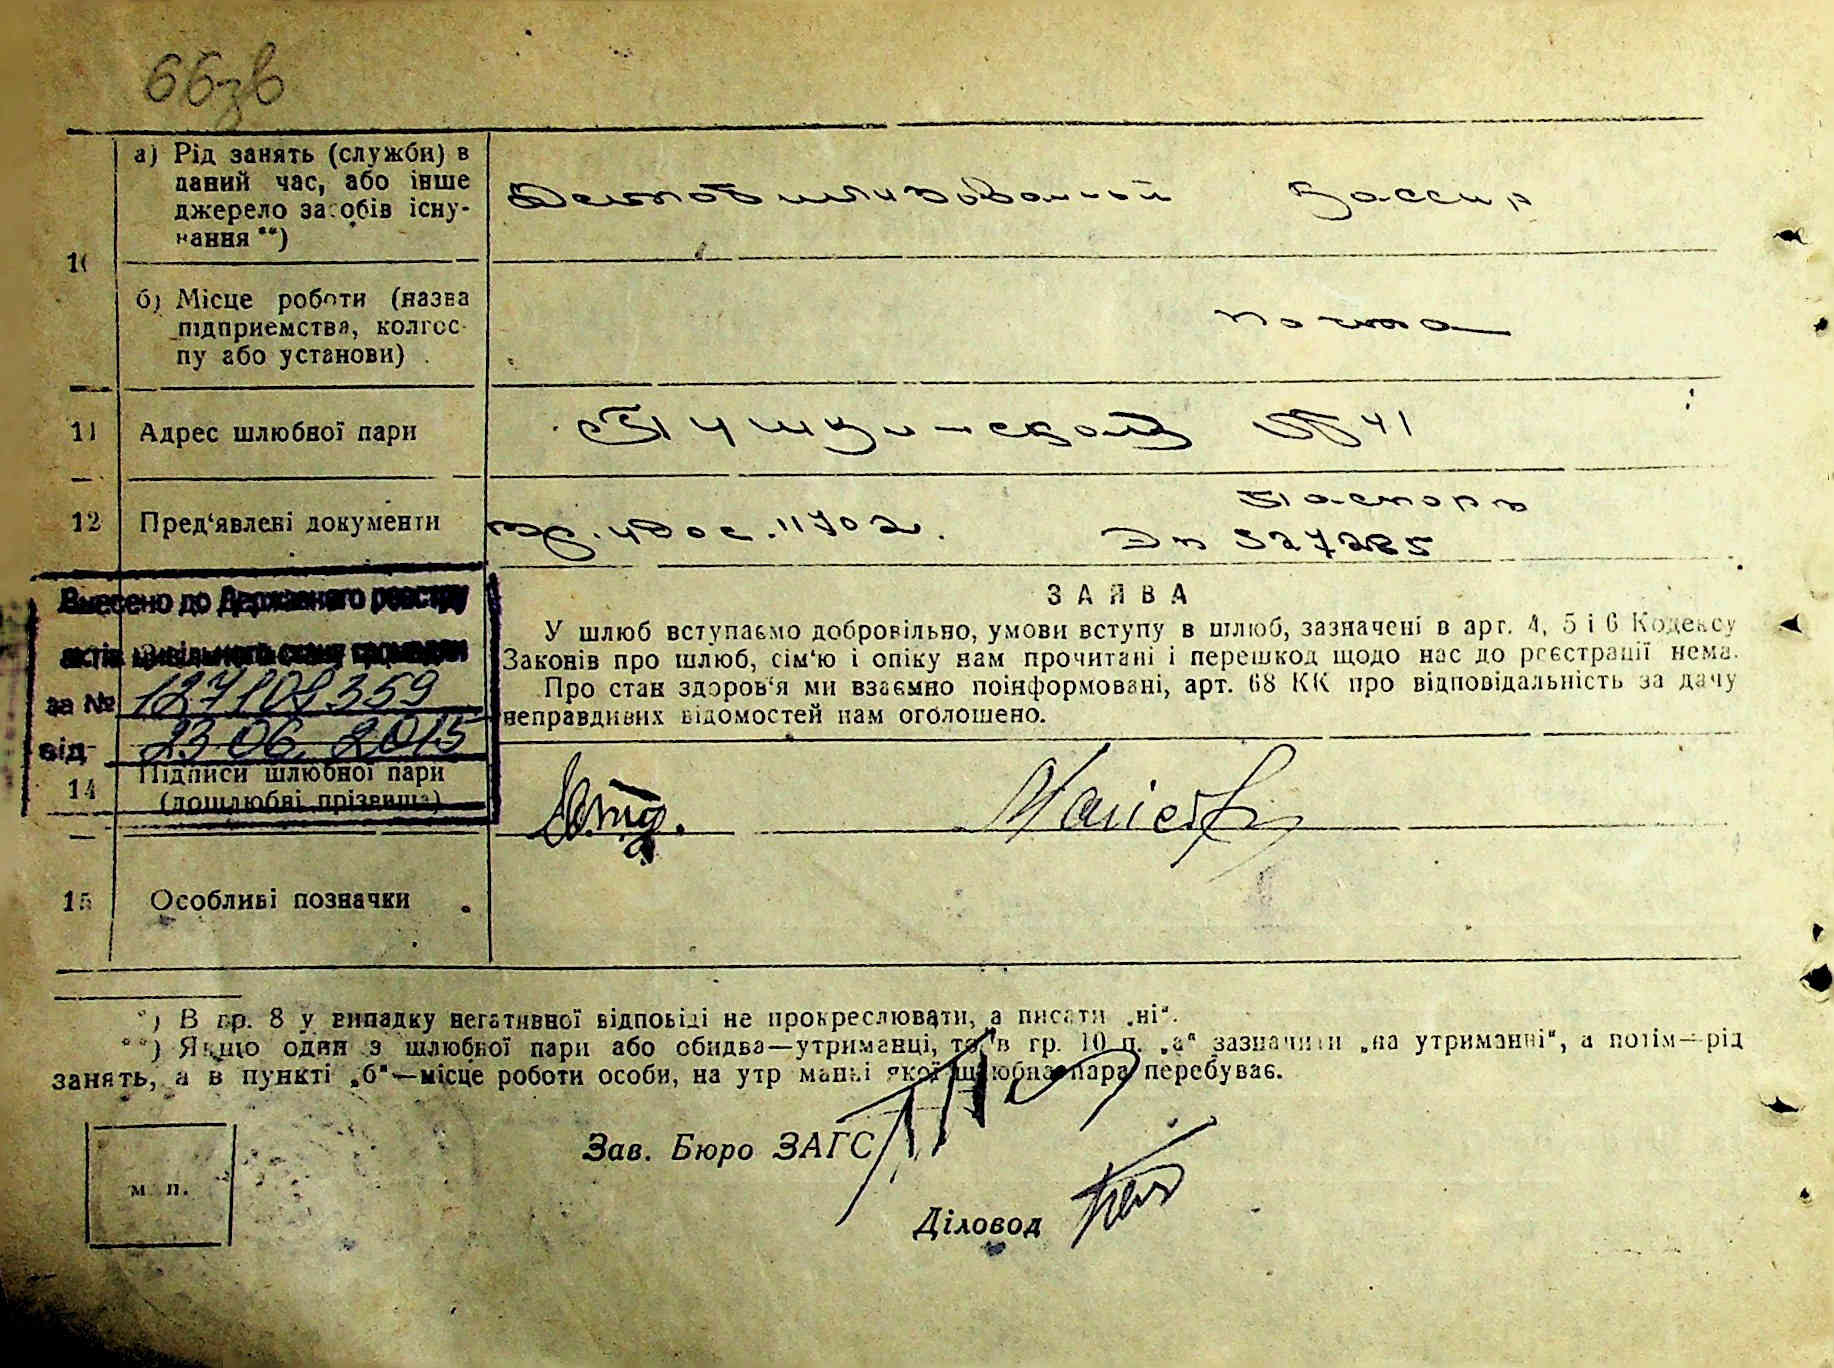 66зв
а) Рід занять (служби) в
даний час, або інше
джерело засобів існу-
вання **)
Демобилизованный Кассир
10
б) Місце роботи (назва
підприємства, колгос-
пу або установи) .
почта
11 Адрес шлюбної пари
Пушкинская 41
12 Пред‘явлені документи
удос. 11702. Паспорт
527285
Внесено до Державного реєстру
актів цивільного стану громадян
за № 127109359
від 23 06. 2015
ЗАЯВА
У шлюб вступаємо добровільно, умови вступу в шлюб, зазначені в арт. 4, 5 і 6 Кодексу
Законів про шлюб, сім‘ю і опіку нам прочитані і перешкод щодо нас до реєстрації нема.
Про стан здоров‘я ми взаємно поінформовані, арт. 68 КК про відповідальність за дачу
неправдивих відомостей нам оголошено.
14 Підписи шлюбної пари
(дошлюбні прізвища)
15 Особливі позначки
*) В гр. 8 у випадку негативної відповіді не прокреслювати, а писати „ні“.
**) Якщо один з шлюбної пари або обидва—утриманці, то в гр. 10 п. „а“ зазначити „на утриманні“, а потім—рід
занять, а в пункті „б“—місце роботи особи, на утр манні якої шлюбна пара перебуває.
Зав. Бюро ЗАГС
м. п.
Діловод